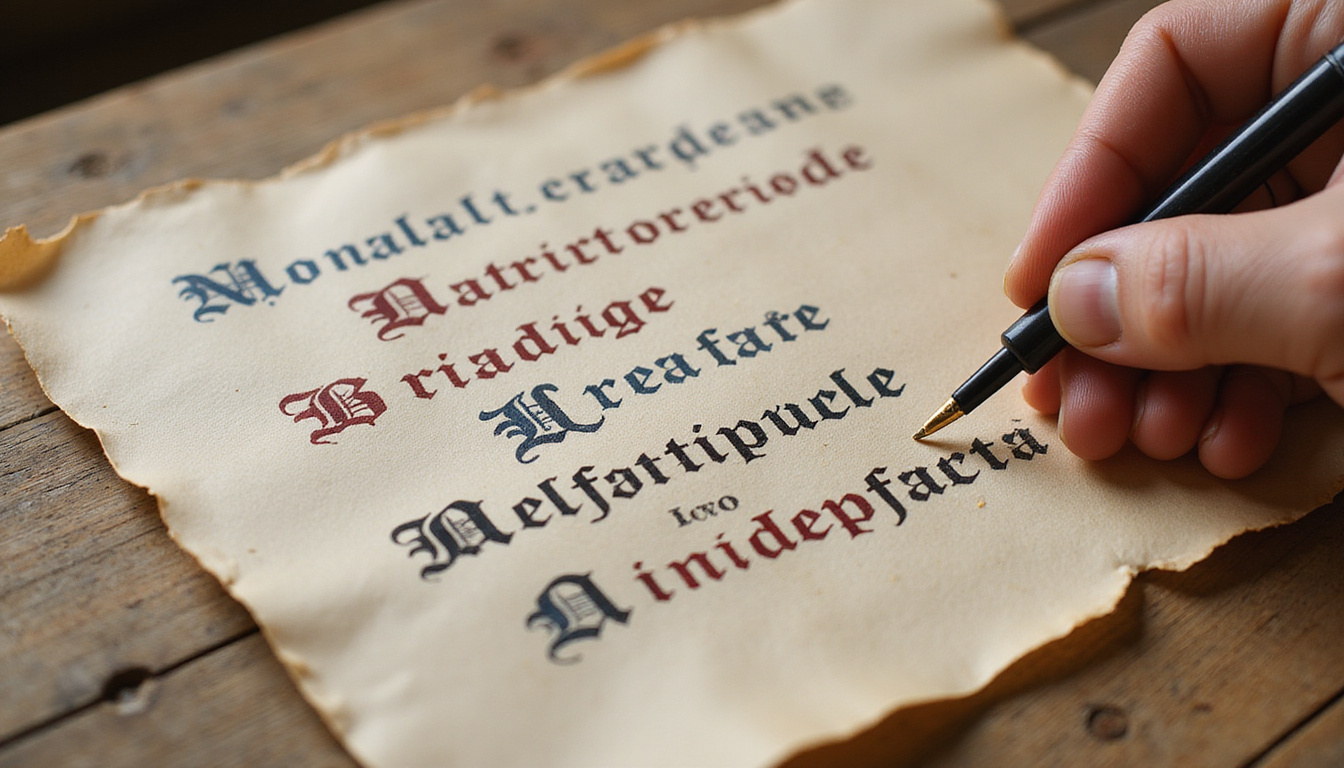 Monalalt.crardeans
Datrirtoreriode
Briadiige
Kreafafe
Delfottipucle
Icvo
Ainidepfacta